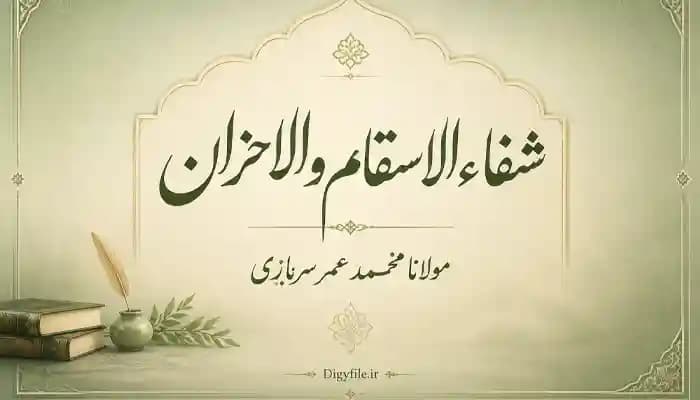 شفاء الاسقام والاحزان
مولانا محمد عمر سربازی
Digyfile.ir